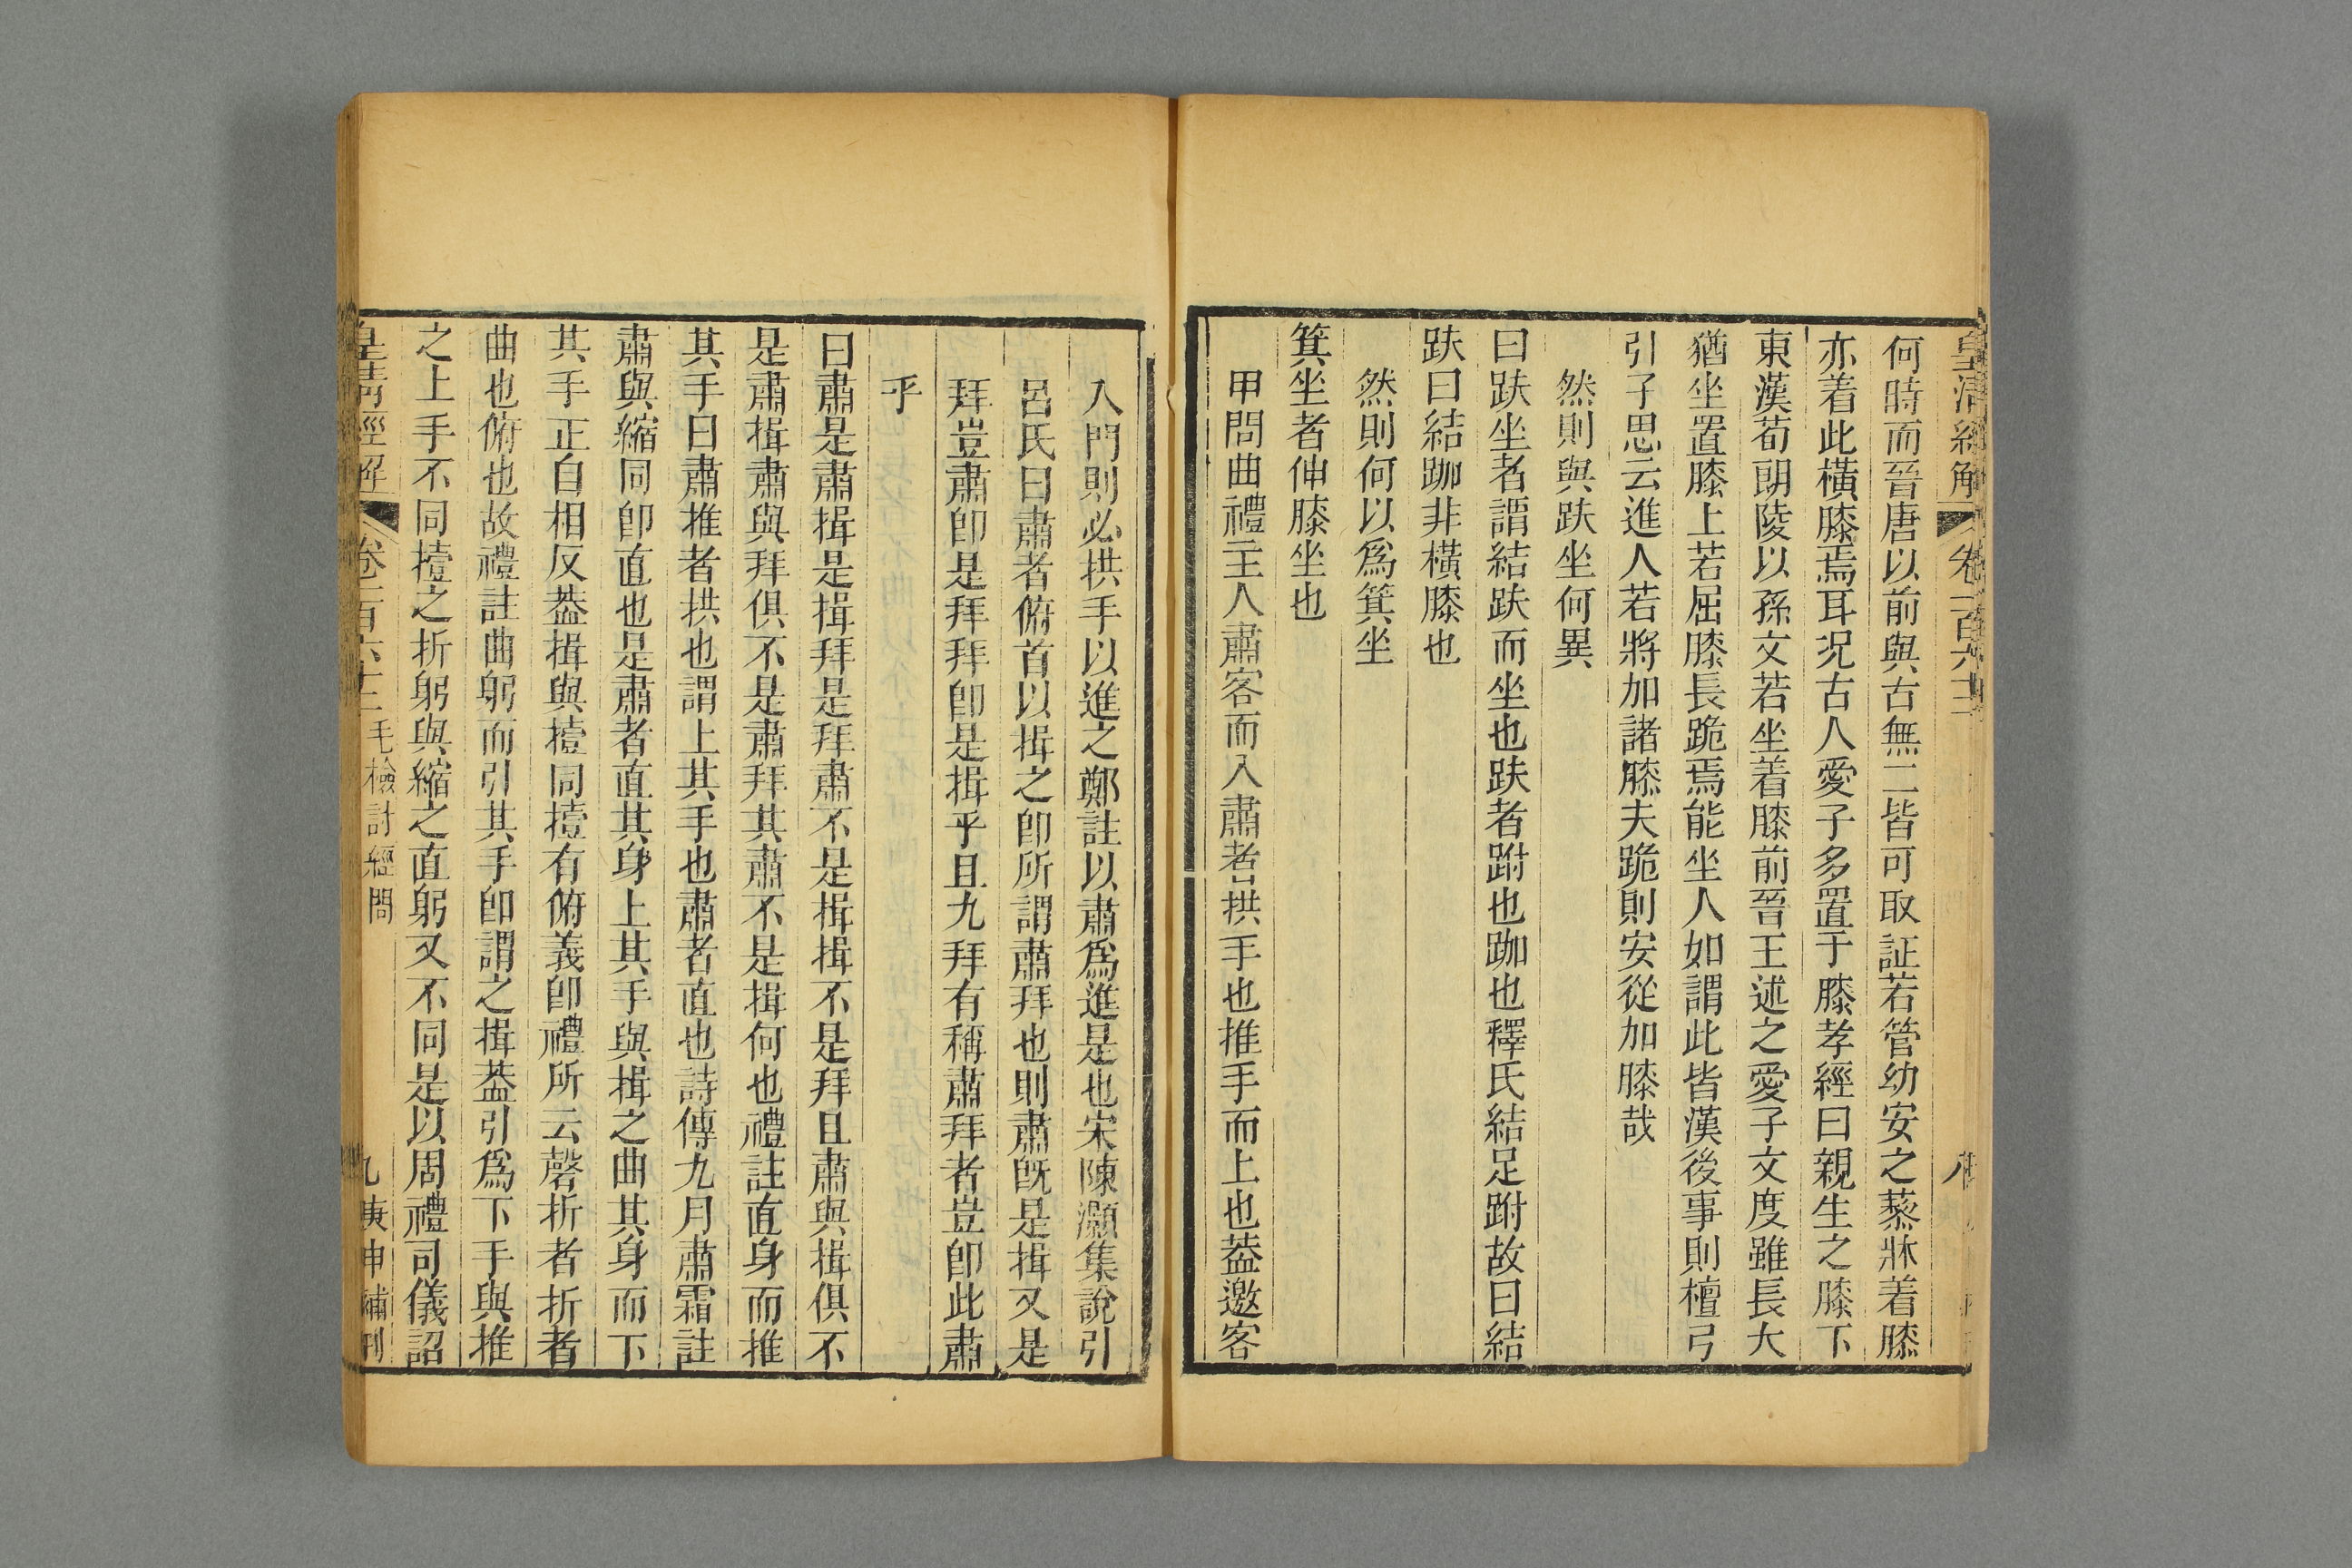 皇清經解 卷一百六十二 八
何時而晉唐以前與古無二皆可取証若管幼安之藜牀着膝
亦着此橫膝焉耳況古人愛子多置于膝孝經曰親生之膝下
東漢荀朗陵以孫文若坐着膝前晉王述之愛子文度雖長大
猶坐置膝上若屈膝長跪焉能坐人如謂此皆漢後事則檀弓
引子思云進人若將加諸膝夫跪則安從加膝哉
然則與趺坐何異
曰趺坐者謂結趺而坐也趺者跗也跏也釋氏結足跗故曰結
趺曰結跏非橫膝也
然則何以爲箕坐
箕坐者伸膝坐也
甲問曲禮主人肅客而入肅者拱手也推手而上也葢邀客
入門則必拱手以進之鄭註以肅爲進是也宋陳灝集說引
呂氏曰肅者俯首以揖之卽所謂肅拜也則肅旣是揖又是
拜豈肅卽是拜拜卽是揖乎且九拜有稱肅拜者豈卽此肅
乎
曰肅是肅揖是揖拜是拜肅不是揖揖不是拜且肅與揖俱不
是肅揖肅與拜俱不是肅拜其肅不是揖何也禮註直身而推
其手曰肅推者拱也謂上其手也肅者直也詩傳九月肅霜註
肅與縮同卽直也是肅者直其身上其手與揖之曲其身而下
其手正自相反葢揖與撎同撎有俯義卽禮所云磬折者折者
曲也俯也故禮註曲躬而引其手卽謂之揖葢引爲下手與推
之上手不同撎之折躬與縮之直躬又不同是以周禮司儀詔
皇清經解 卷一百六十二 毛檢討經問 九 庚申補刊